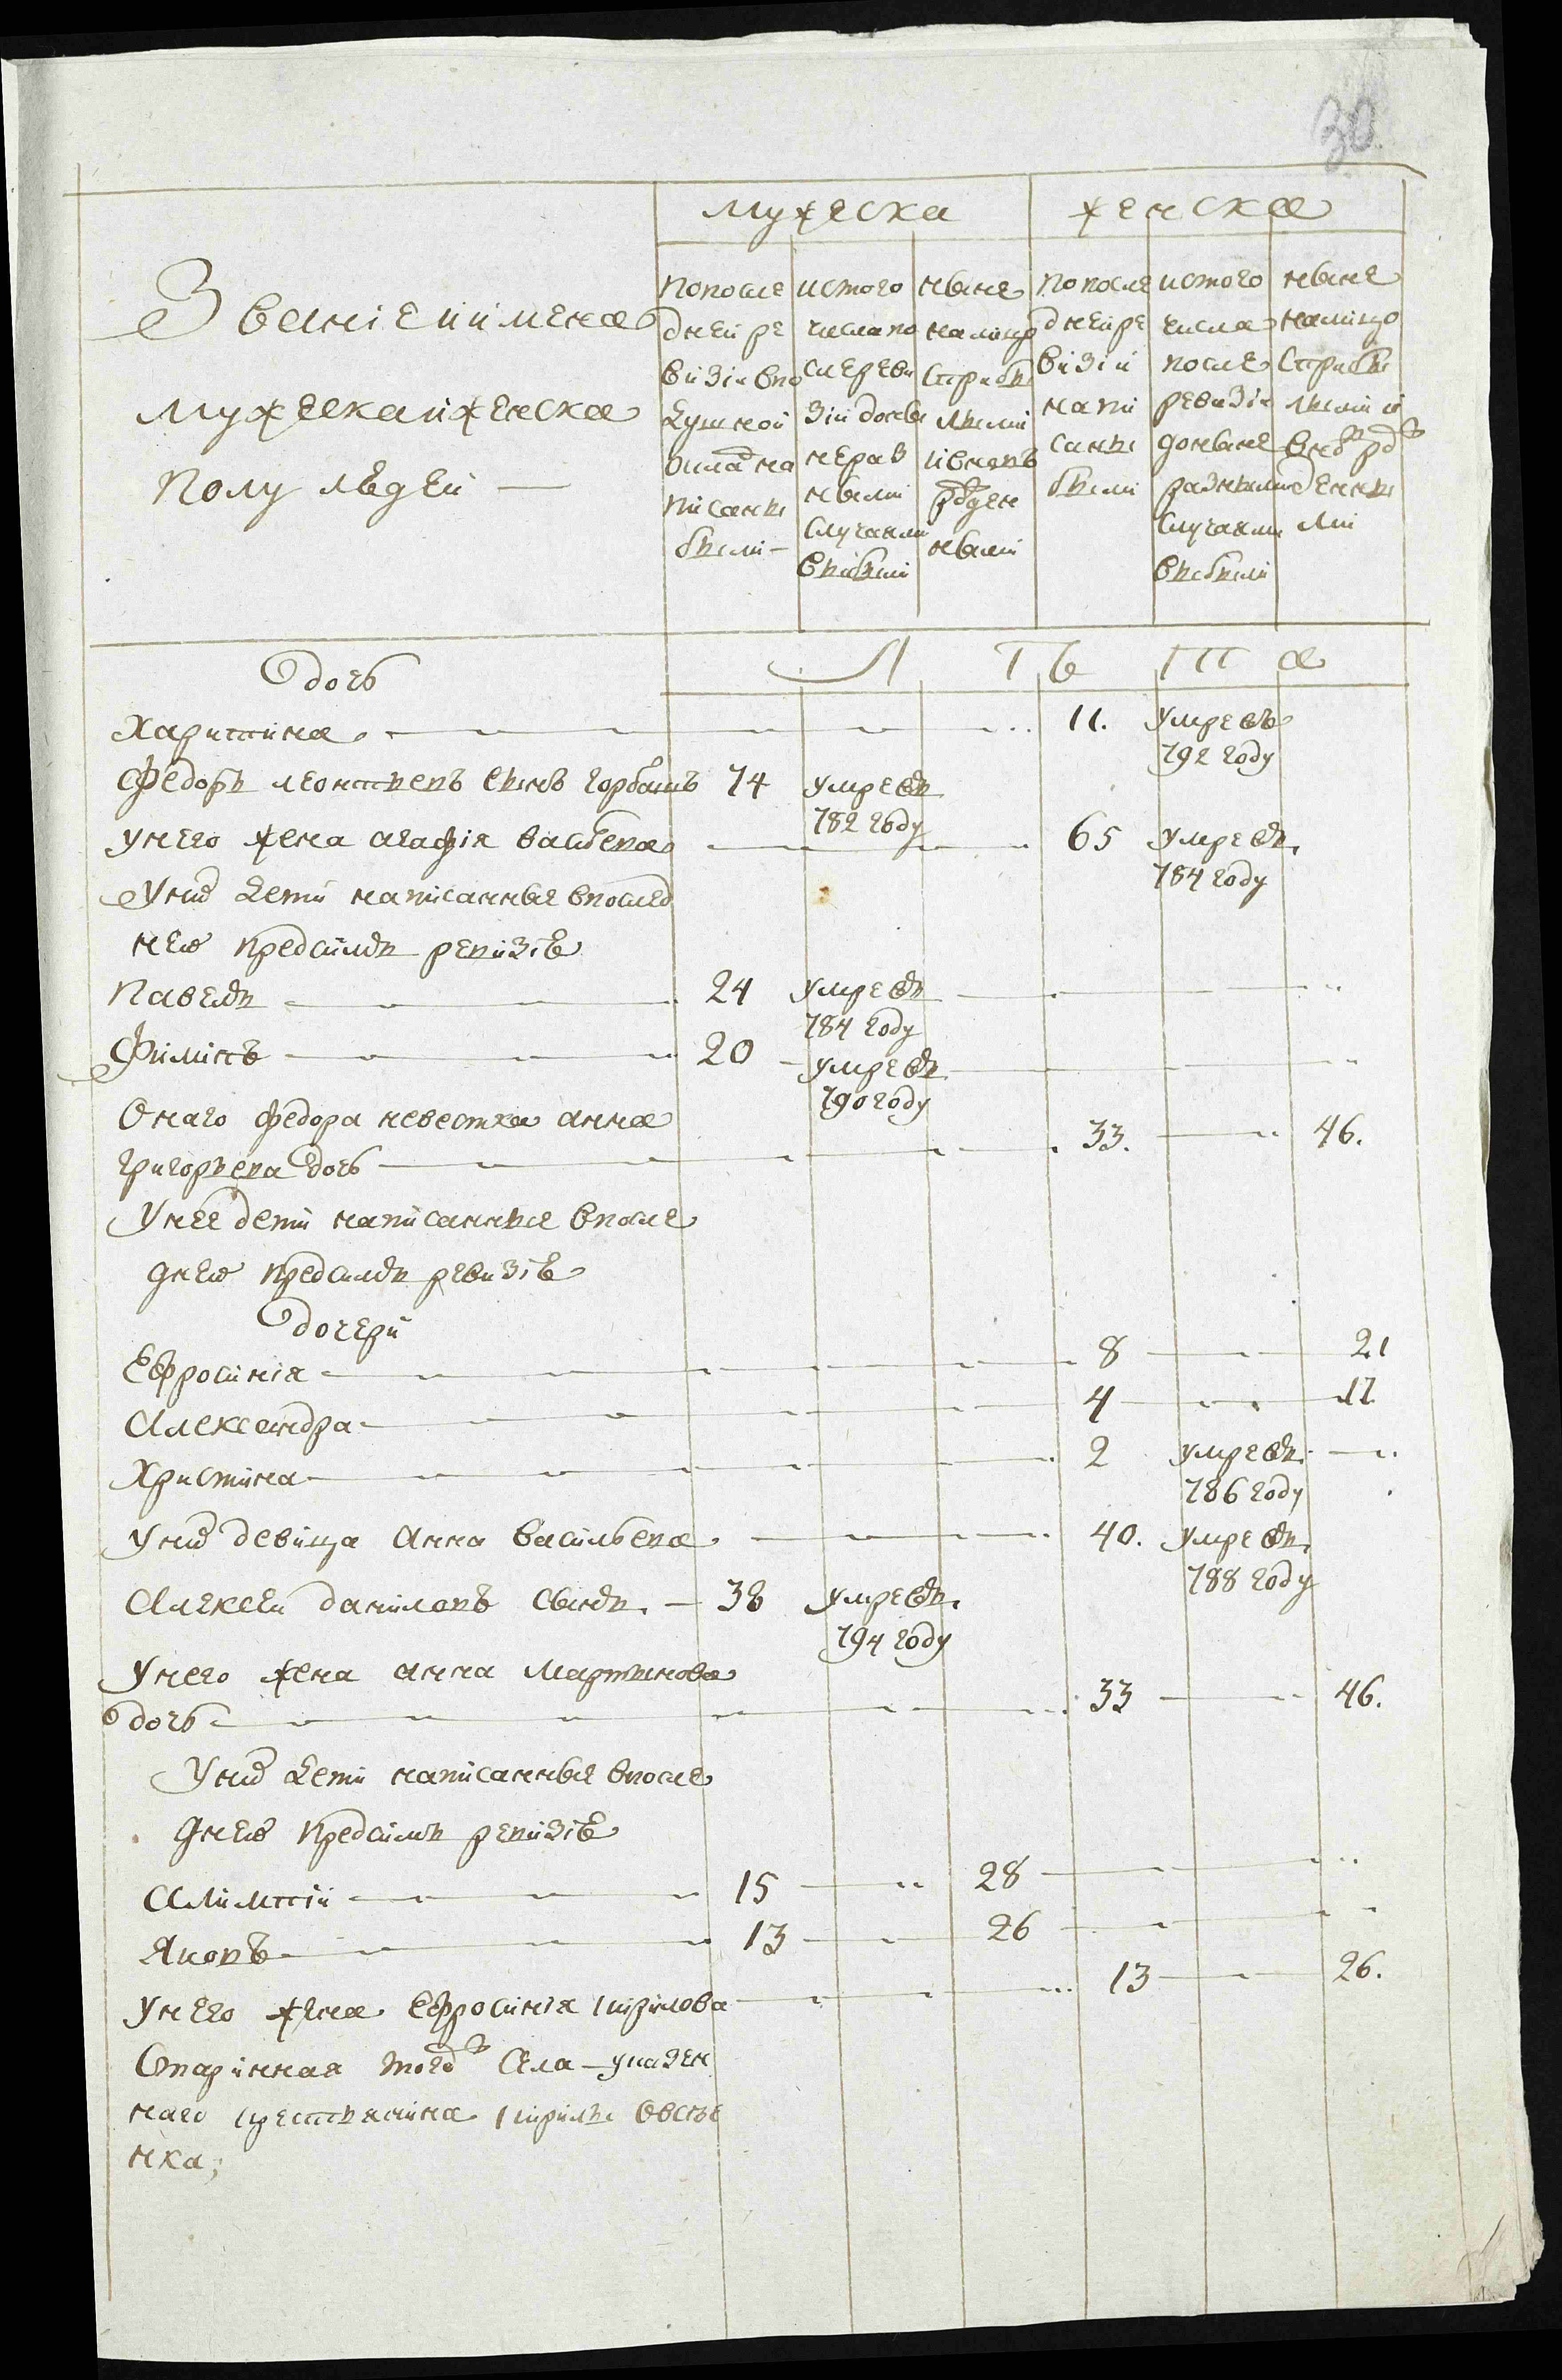 30
мужеска женска
Званіе и имена
мужеска и женска
полу людей —
по после
дней ре
визіи в по
душной
окладъ на
писаны
были —
ис того
числа по
сле реви
зіи до ны
не раз
ными
случаями
выбыли
ныне
на лицо
съ прибы
лыми
и вновь
рожден
ными
по после
дней ре
визіи
напи
саны
были
ис того
числа
после
ревизіи
до ныне
разными
случаями
выбыли
ныне
на лицо
съ прибы
лыми и
вновь рож
денны
ми
лѣта
дочь
Харитина 11. умре въ
792 году
Федоръ Леонтьевъ сынъ Горбань 74 умре въ
782 году
у него жена Агафія Васильева 65 умре въ
784 году
у них дети написанныя в послед
нею пред симъ ревизіе
Павелъ 24 умре въ
784 году
Филипъ 20 умре въ
790 году
Онаго Федора невестка Анна
Григорьева дочь 33. 46.
У нее дети написанные в после
днею пред симъ ревизіе
дочери
Ефросинія 8 21
Александра 4 17
Христина 2 умре въ
786 году
У них девица Анна Васильева 40. умре въ
788 году
Алексей Даниловъ сынъ — 38 умре въ
794 году
У него жена Анна Мартынова
дочь 33 46.
У них дети написанныя в после
днею пред симъ ревизіе
Алимпій 15 28
Яковъ 13 26
У него жена Ефросинія Кирилова 13 26.
Старинная того ж села указен
наго крестьянина Кирилы Овсие
нка;